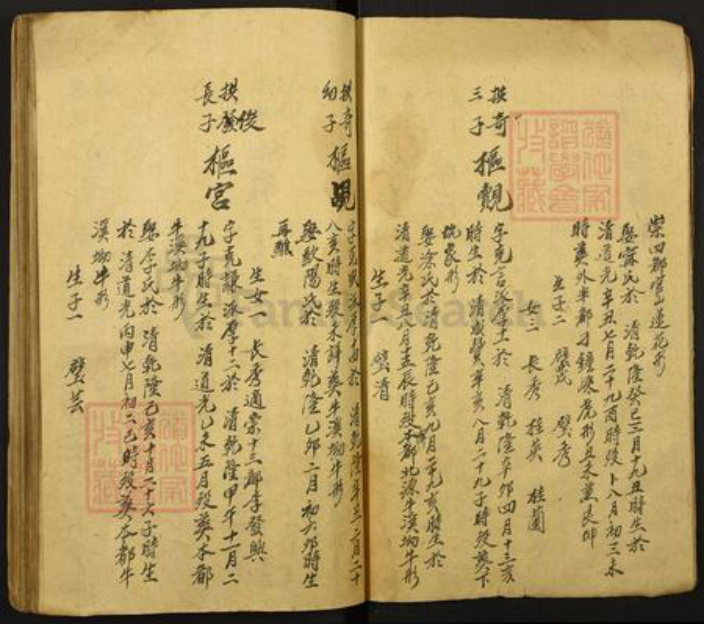 崇四都官山蓮花形
娶甯氏於 清乾隆癸巳三月十九丑時生於
清道光辛丑七月二十九酉時歿卜八月初三未
時葬外半都刁鐘 虎形丑未兼艮坤
生子二 璧茂 璧秀
女三 長秀 桂英 桂蘭
拱奇
三子 樞覲
字克言派厚 於 清乾隆辛卯四月十三亥
時生於 清咸豐辛亥八月二十九子時歿葬下
家形
娶 氏於清乾隆己亥九月二十九亥時生於
清道光辛丑八月十五辰時歿本都北源牛溪坳牛形
生子一 璧清
拱奇
幼子 樞
字克 派厚 於 清乾隆辛丑二月二十
八亥時生歿未詳葬牛溪坳牛形
娶歐陽氏於 清乾隆乙卯二月初六卯時生
再醮
生女一 長秀適崇十三都李發興
俊
拱發
長子 樞宮
字克謙派厚十二於 清乾隆甲午十二月二
十九子時生於 清道光乙未五月歿葬本都
牛溪坳牛形
娶李氏於 清乾隆己亥十月二十六子時生
於 清道光丙申七月初二巳時歿葬本都牛
溪坳牛形
生子一 璧芸